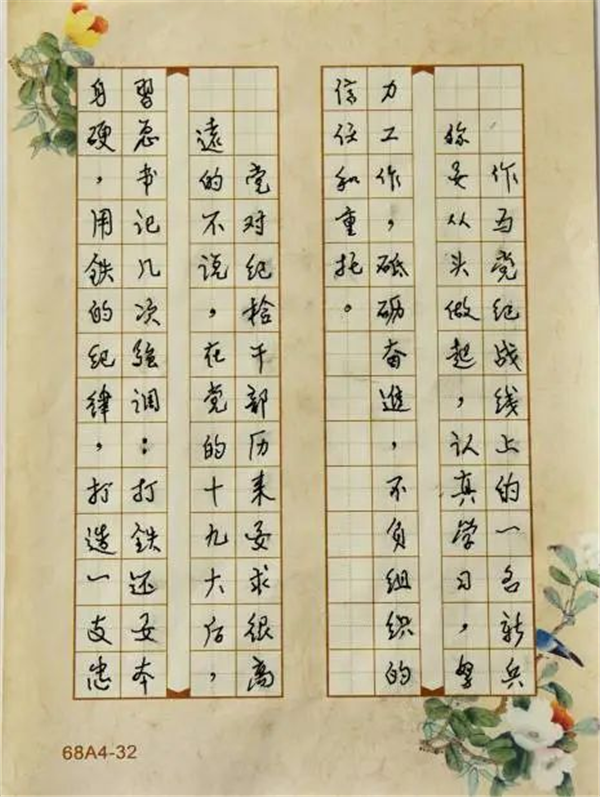 作为党纪战线上的一名新兵
要从头做起，认真学习，努
力工作，砥砺奋進，不负组织的
信任和重托。
党对纪检干部历来要求很高
遠的不说，在党的十九大后，
習总书记几次强调：打鉄还要本
身硬，用鉄的纪律，打造一支忠
68A4-32